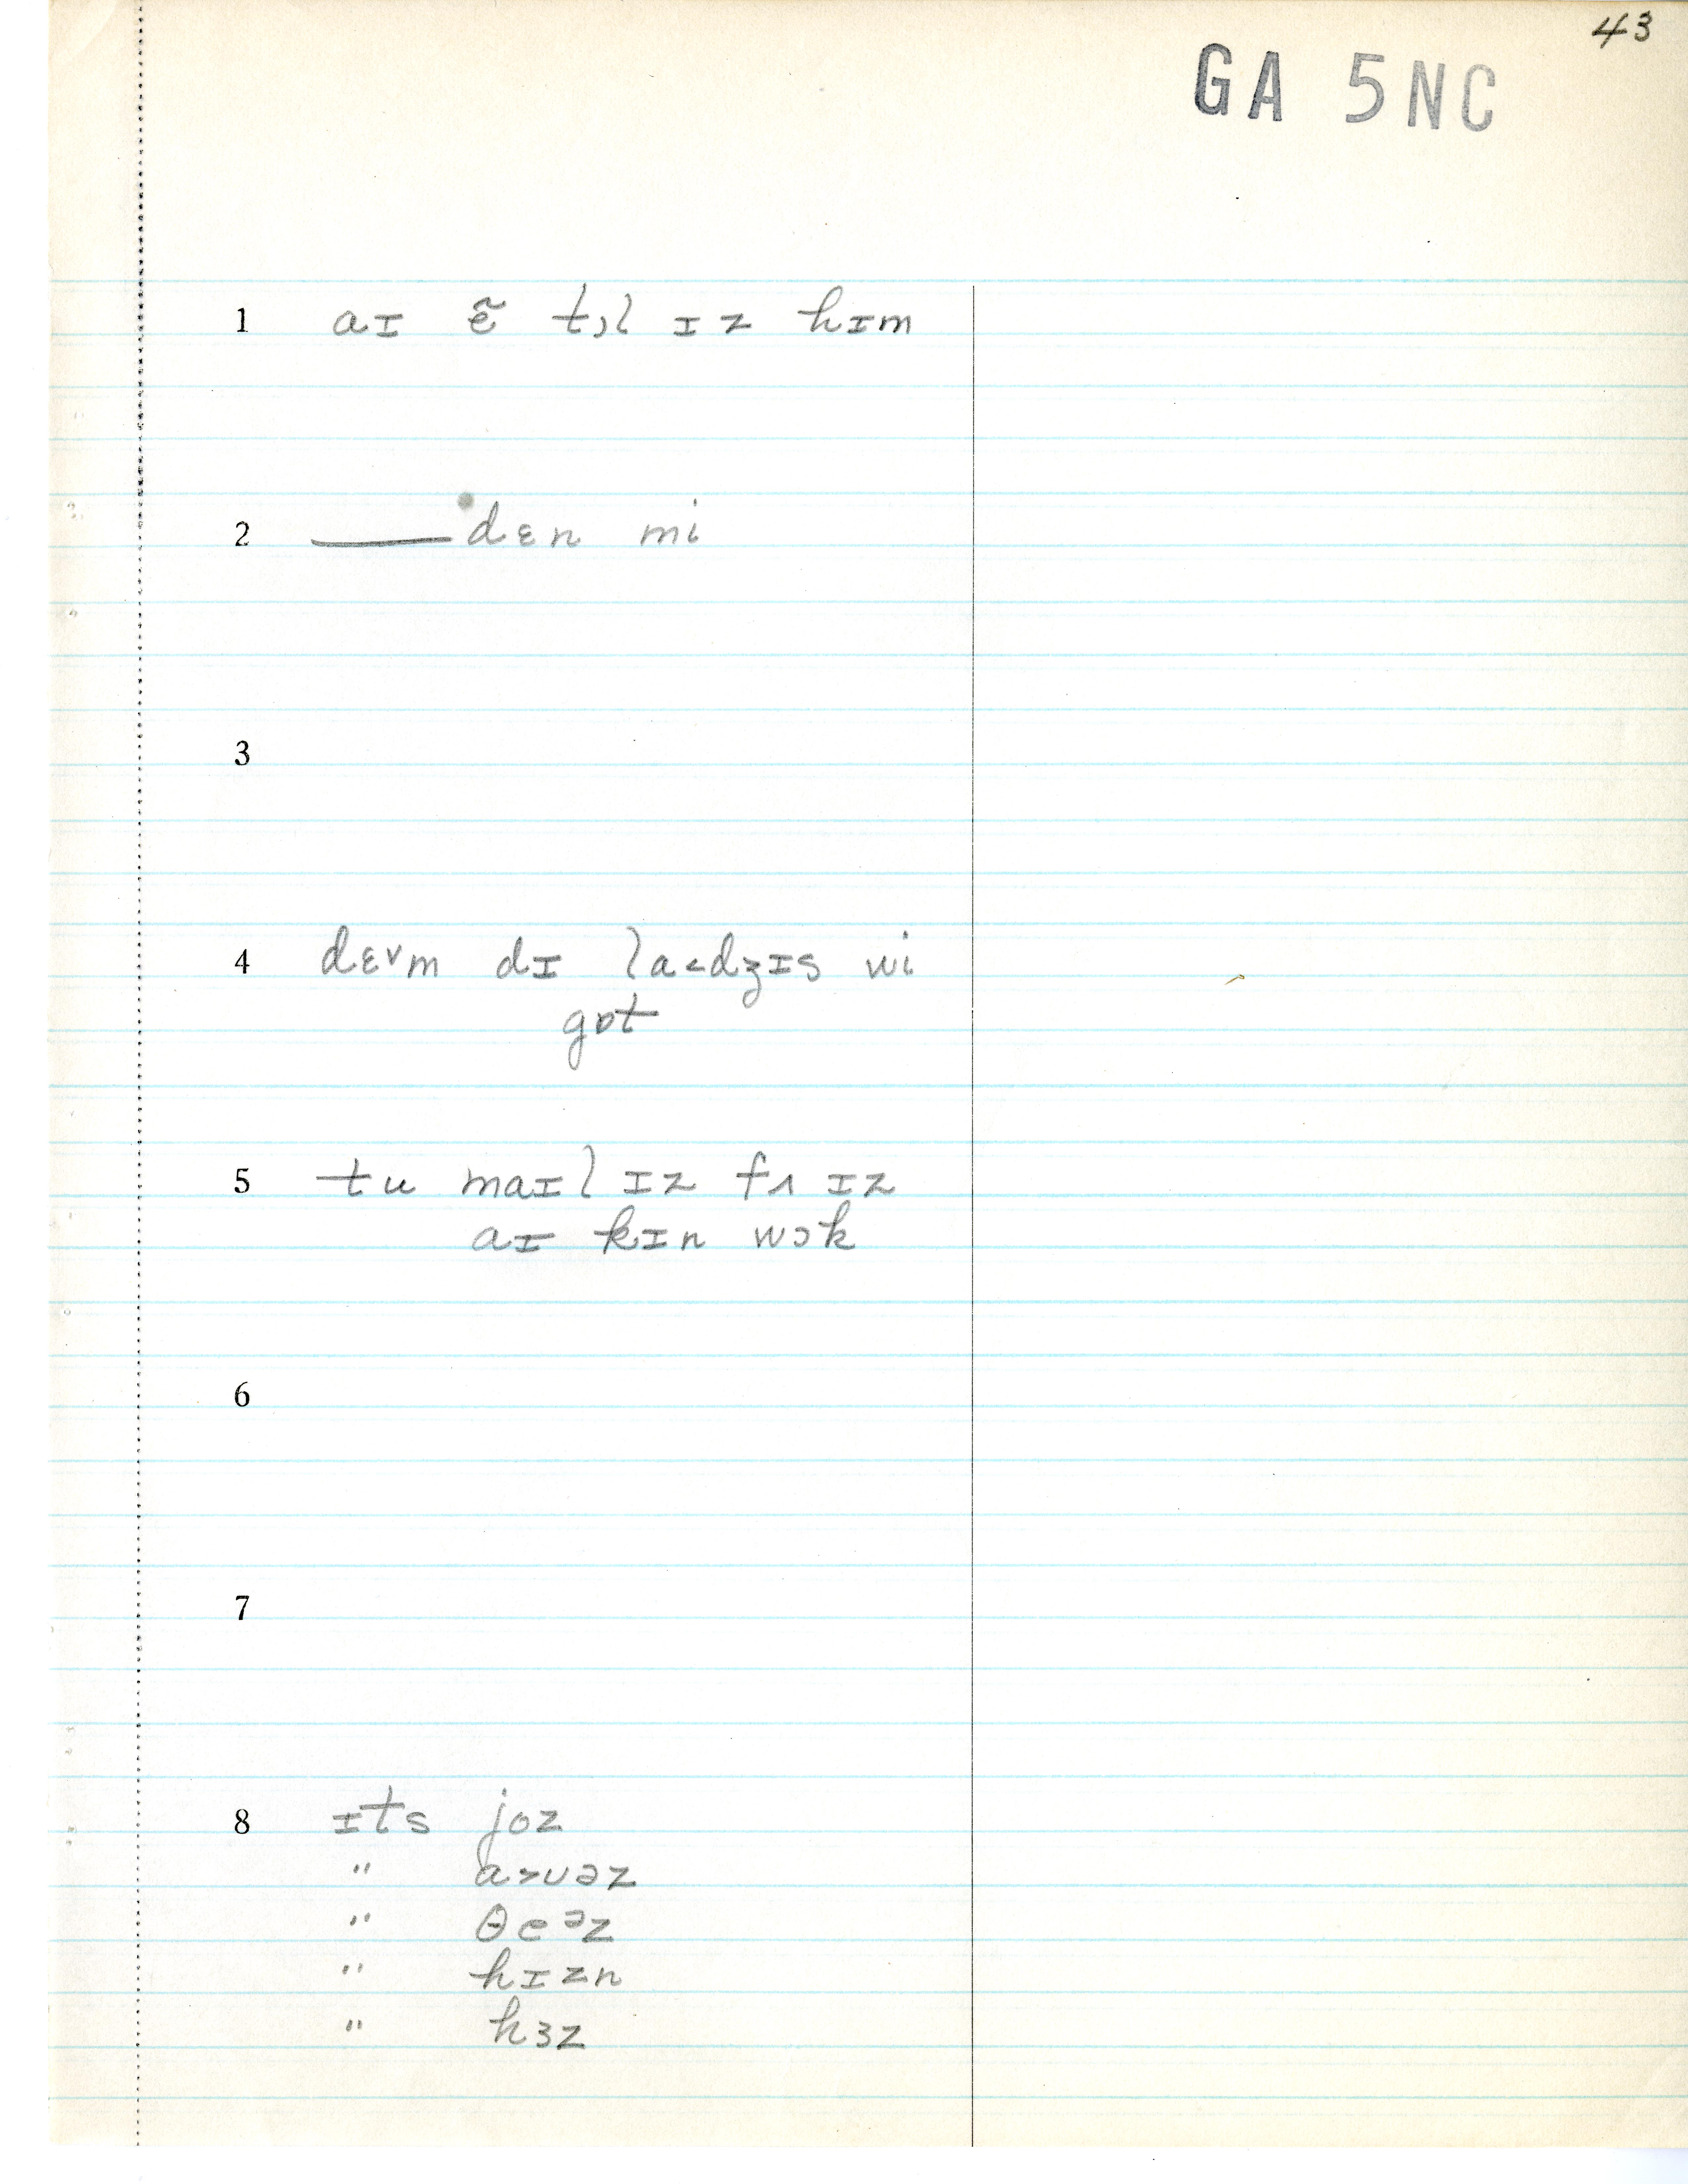 43
GA 5NC
1 aɪ ẽ tɔl ɪz hɪm
2 ——— dɛn mi
3
4 dɛ˅m dɪ la˂dʒɪs wi
gɒt
5 tu maɪl ɪz fʌ ɪz
aɪ kɪn wɔk
6
7
8 ɪts joz
" a˃ʊəz
" θeᵊz
" hɪzn
" hɜz